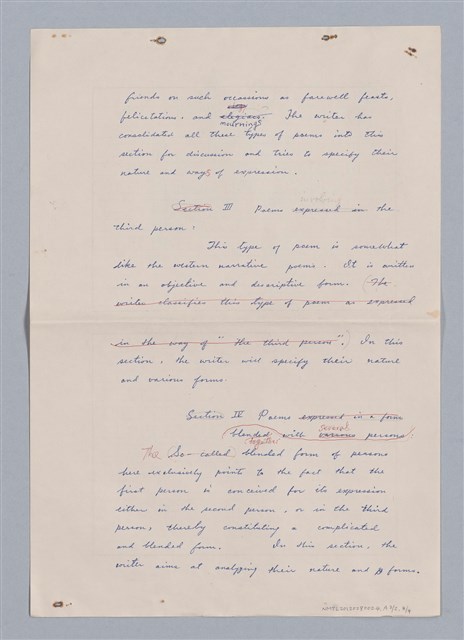 friends on such occasions as farewell feasts,
felicitations, and elegies. The writer has
mournings
consolidated all these types of poems into this
section for discussion and tries to specify their
nature and ways of expression.
Section III Poems expressed in the
involving
third person:
This type of poem is somewhat
like the western narrative poems. It is written
in an objective and descriptive form. (The
writer classifies this type of poem as expressed
in the way of "the third person".) In this
section, the writer will specify their nature
and various forms.
Section IV Poems expressed in a form
several
blended with various persons:
together
The So-called blended form of persons
here exclusively point to the fact that the
first person is conceived for its expression
either in the second person, or in the third
person, thereby constituting a complicated
and blended form. In this section, the
writer aims at analyzing their nature and forms.